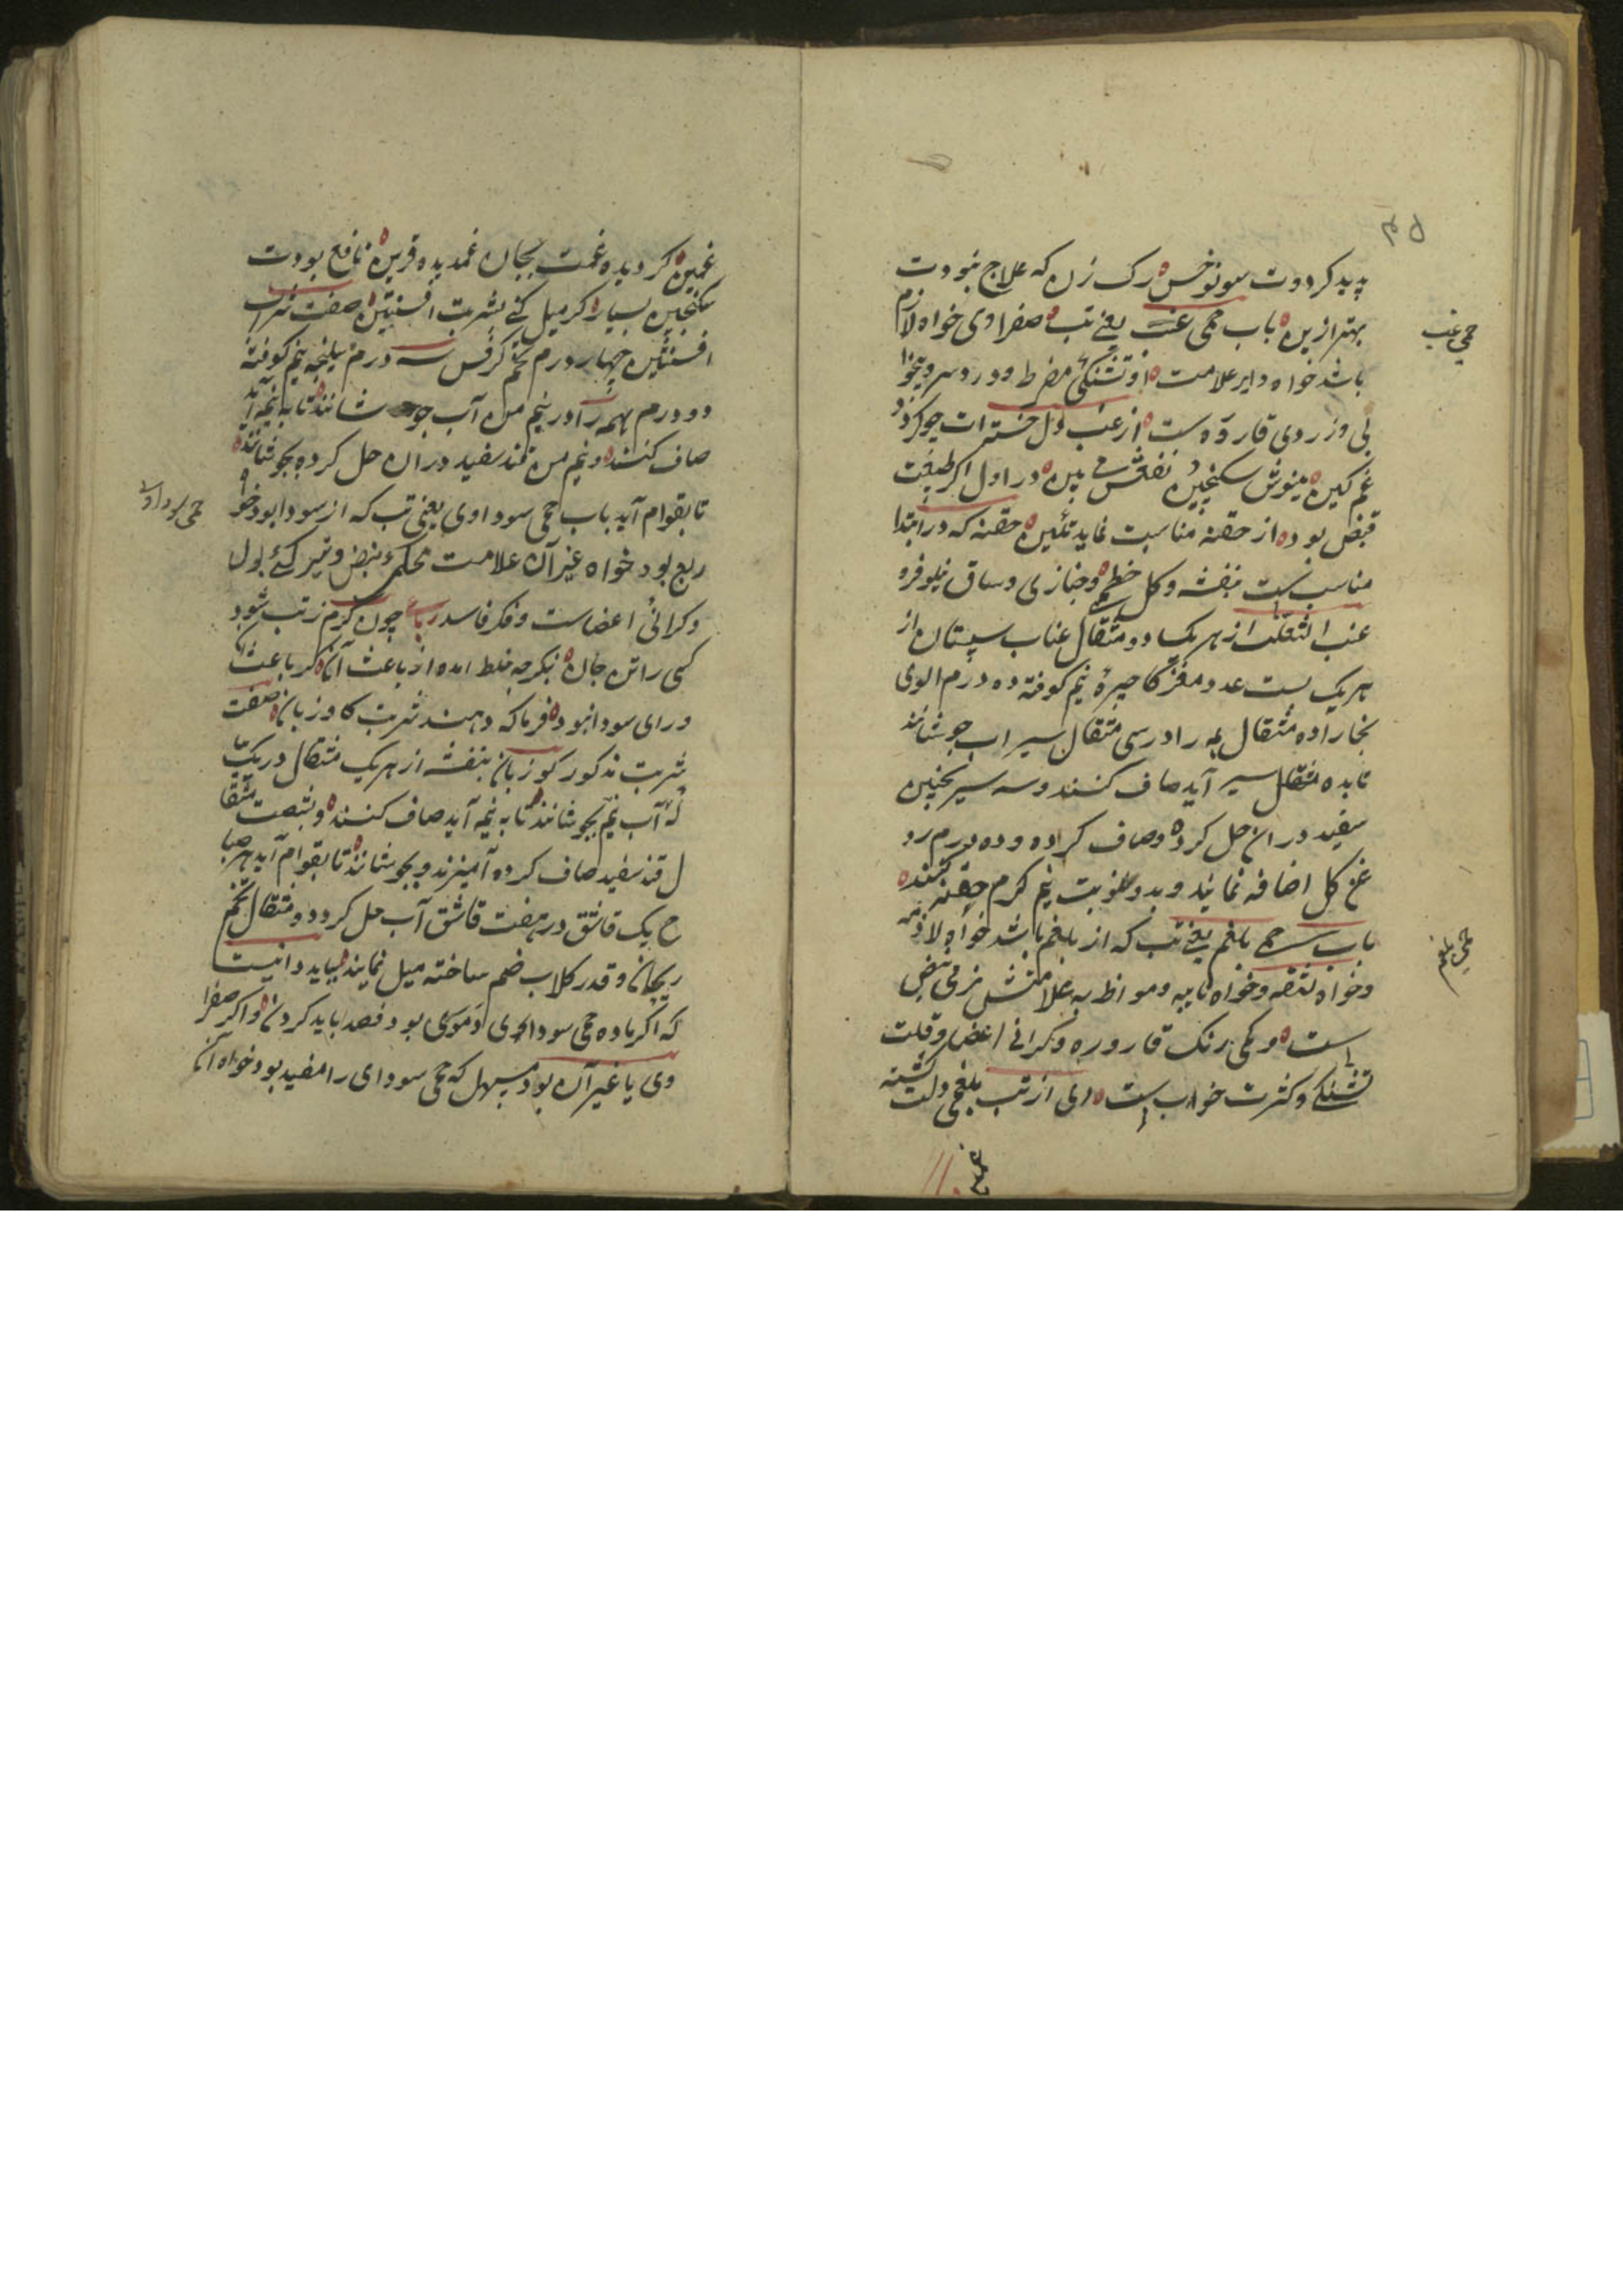 ۴۵
پدید کردوت سونوخس رک زن که علاج نبودت
بهتر ازین باب حمی غب یعنی تب صفراوی خواه لازم
حمی غب
باشد خواه دایر علامت او تشنکی مفرط و درد سر و بیخوا
بی و زردی قاروره ست از غب دل خسته ات چو کردد
غم کین مینوش سکنجبین بین در اول اکر طبیعت
قبض بود از حقنه مناسبت نماید تلیین حقنه که در ابتدا
مناسب ست بنفشه و کل خطمی و خبازی و ساق نیلوفر و
عنب الثعلب از هر یک دو مثقال عناب سپستان از
هر یک بست عدد مغز کاجیره نیم کوفته ده درم الوی
بخارا ده مثقال همه را در سی مثقال سیر اب جوشانند
تا بده مثقال سیر آید صاف کنند و سه سیر
سفید در ان حل کرده و صاف کراده و ده درم رو
غن کل اضافه نمایند و بدو نوبت نیم کرم حقنه کنند
باب حمی بلغم یعنی تب که از بلغم باشد خواه لازمه
حمی بلغم
و خواه نایبه و مواظبه علامتش نرمی نبض
است و کمی رنک قاروره و کرانی اعضا و قلت
تشنکی و کثرت خواب ست ای از تب بلغمی دلت کشته
غمین کردیده غمت بجان غمدیده قرین نافع بودت
سکنجبین بسیار اکر میل کنی بشربت افسنتین صفت شراب
افسنتین چهار درم تخم کرفس سه درم نیم کوفته
دو درم همه را در نیم من آب جو شانند تا به نیمه آید
صاف کنند و نیم من قند سفید دران حل کرده بجوشانند
تا بقوام آید باب حمی سوداوی یعنی تب که از سودا بود خو
حمی سوداوی
ربع بود خواه غیر آن علامت نبض و تیر کی بول
و کرانی اعضاست و فکر فاسد رباعی چون کرم ز تب شود
کسی را تن جان بنکر چه خلط امده از باعث آن کر باعث آن
ورای سودا نبود فرما که دهند شربت کاو زبان صفت
شربت مذکور کوزبان بنفشه از هر یک مثقال در یک پیا
له آب نیم بجوشانند تا به نیمه آید صاف کنند و شصت مثقا
ل قند سفید صاف کرده آمیزند و بجوشانند تا بقوام آید هر صبا
ح یک قاشق در هفت قاشق آب حل کرده دو مثقال تخم
ریحان و قدر کلاب ضم ساخته میل نمایند بباید دانست
که اکر ماده حمی سوداوی دموی بود فصد باید کردن و اکر صفرا
وی یا غیر آن بود مسهل که حمی سودای را مفید بود خواه آنکه